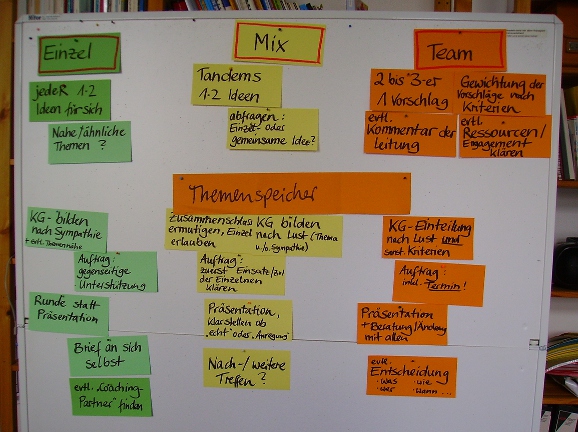 Einzel
jedeR 1-2
Ideen für sich
Nahe/ähnliche
Themen ?
Mix
Tandems
1-2 Ideen
abfragen:
Einzel- oder
gemeinsame Idee?
Team
2 bis 3-er
1 Vorschlag
Gewichtung der
Vorschläge nach
Kriterien
evtl.
Kommentar der
Leitung
evtl.
Ressourcen/
Engagement
klären
Themenspeicher
KG-bilden
nach Sympathie
+ evtl. Themennähe
Auftrag:
gegenseitige
Unterstützung
Runde statt
Präsentation
Brief an sich
selbst
evtl. "Coaching-
Partner" finden
Zusammenschluss KG bilden
ermutigen, Einzel nach Lust (Thema
erlauben u./o. Sympathie)
Auftrag:
zuerst Einsatz/Ziel
der Einzelnen
klären
Präsentation,
klarstellen ob
"echt" oder "Anregung"
Nach-/weitere
Treffen ?
KG-Einteilung
nach Lust und
sonst. Kriterien
Auftrag:
inkl. Termin!
Präsentation
+ Beratung/Änderung
mit allen
evtl.
Entscheidung
· was · wie
· wer · wann ...